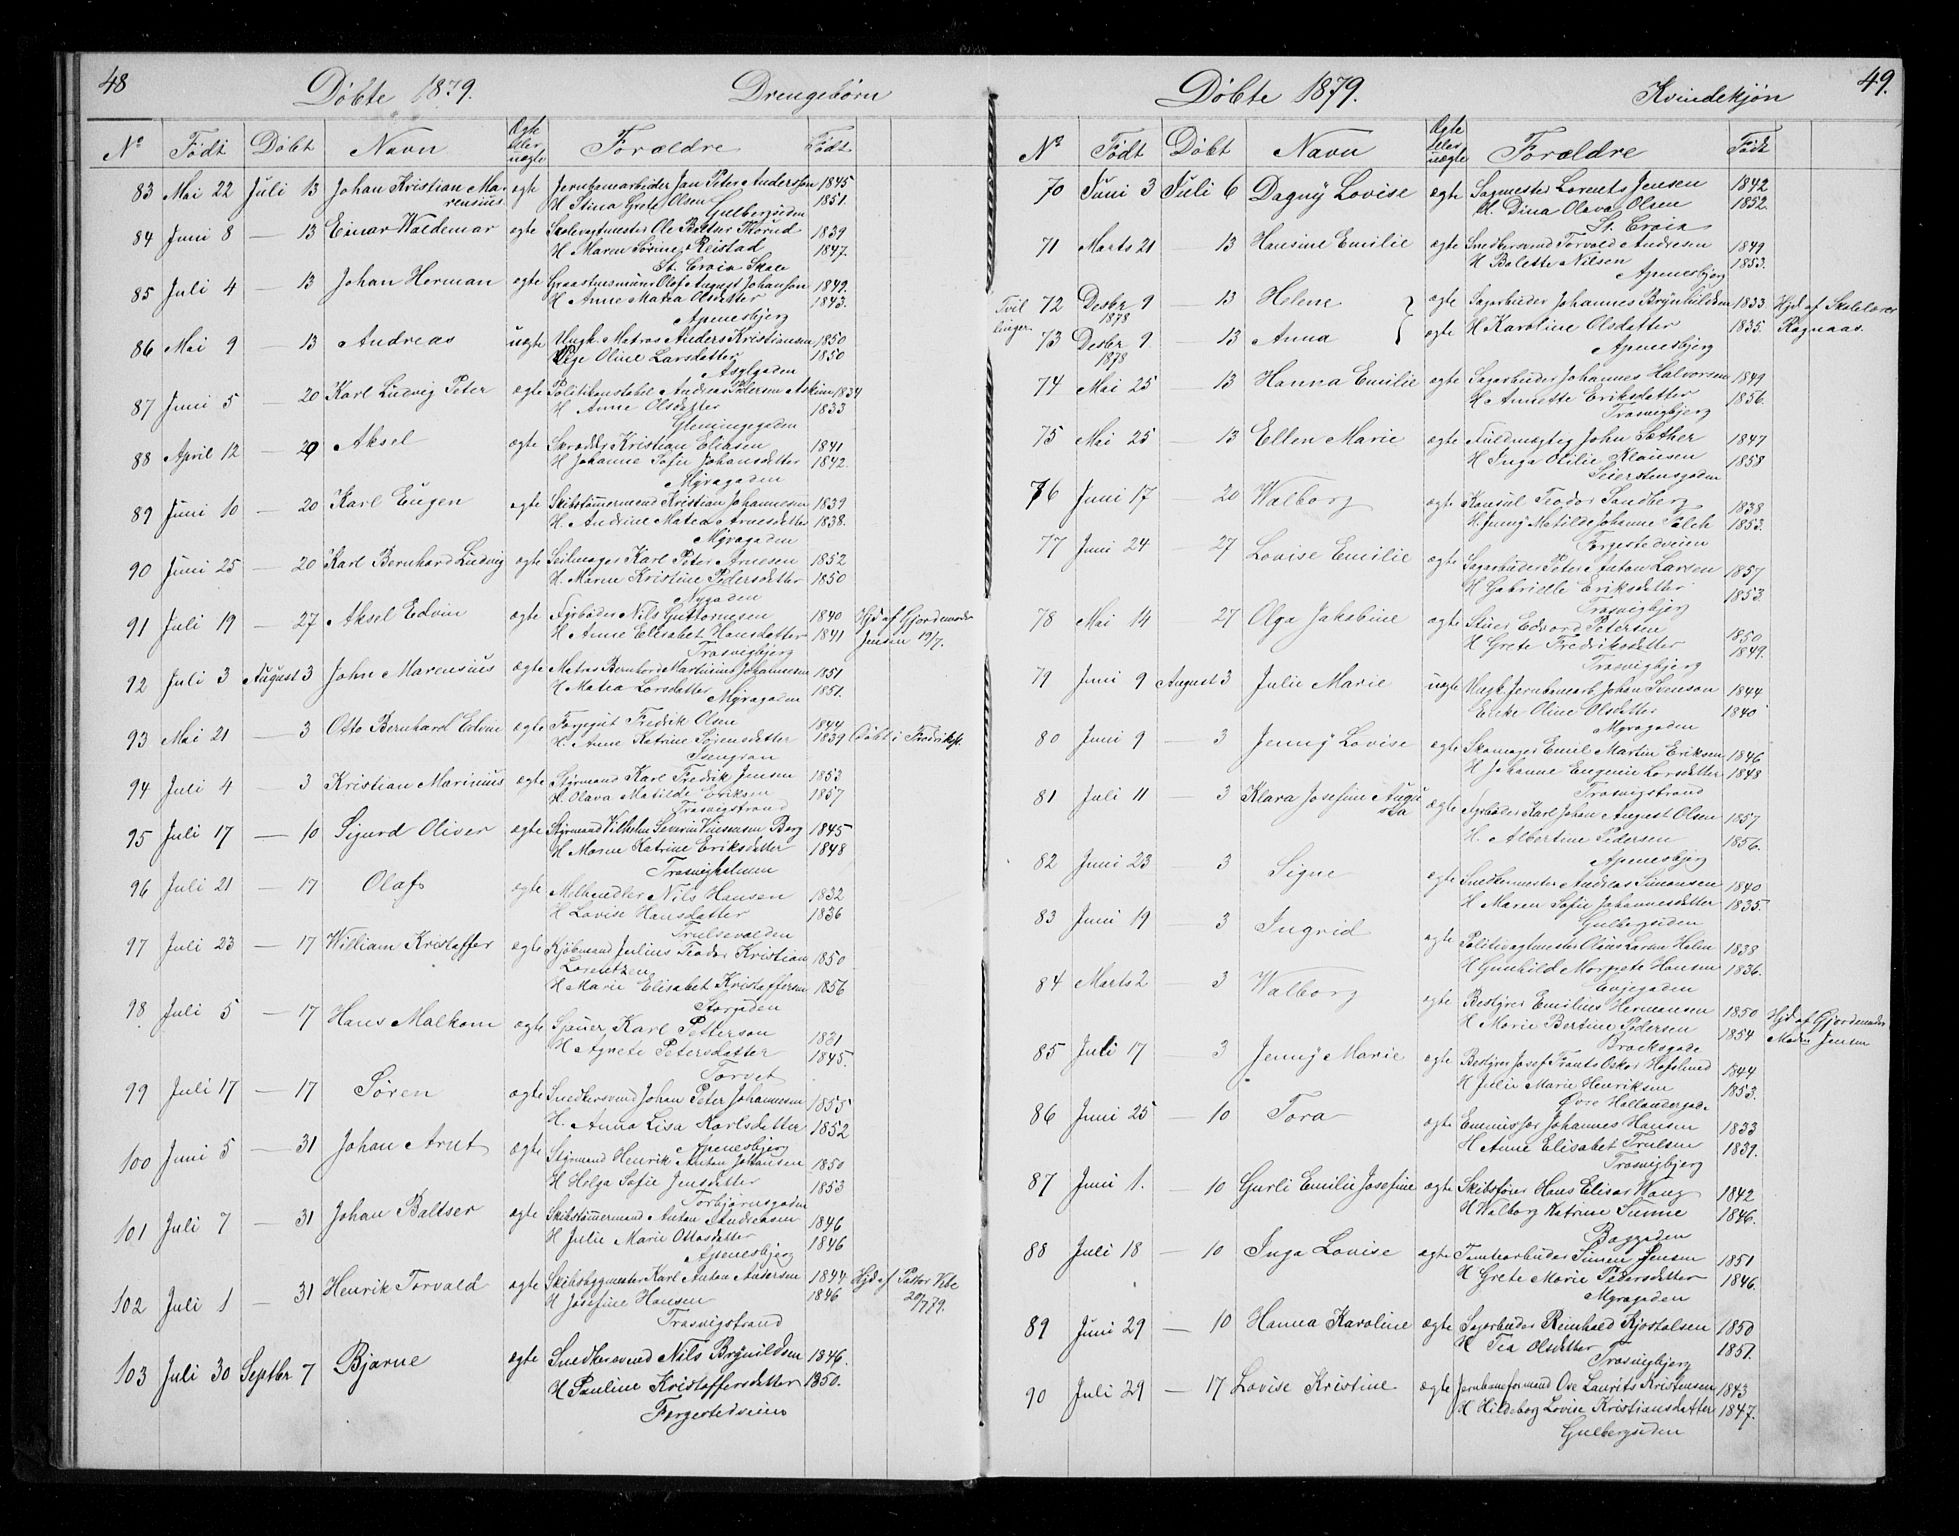 48
Døbte 1879.
Drengebørn
No Født Døbt Navn Ægte eller uægte Forældre Født
83 Mai 22 Juli 13 Johan Kristian Marensius ægte Jernbanearbeider Jan Peter Anderssøn 1845
H. Stina Grete Olsen 1851.
Gulbergsiden
84 Juni 8 — 13 Einar Waldemar ægte Ole Baltser 1839
H Maren Sørine Reistad 1847.
St. Croix Skole
85 Juli 4 — 13 Johan Herman ægte Graastensmurer Olof August Johanson 1849.
H Anne Matea Olsdatter 1843.
Apenesbjerg
86 Mai 9 — 13 Andreas uægte Ungk. Matros Anders Kristiansen 1850
Pige Oline Larsdatter 1850
Asylgaden
87 Juni 5 — 20 Karl Ludvig Peter ægte Politikonstabel Andreas Pedersen Askim 1834
H. Anne Olsdatter 1833
Glemmegaden
88 April 12 — 20 Aksel ægte Skrædder Kristian Eliasen 1841
H Johanne Sofie Johansdatter 1842.
Myragaden
89 Juni 10 — 20 Karl Eugen ægte Skibstømmermand Kristian Johannesen 1839
H. Andrine Matea Arnesdatter 1838.
Myragaden
90 Juni 25 — 20 Karl Bernhard Ludvig ægte Seilmager Karl Peter Arnesen 1852
H. Maren Kristine Pedersdatter 1850
Nygaden
91 Juli 19 — 27 Aksel Edvin ægte Fyrbøder Nils Guttormsen 1840 Hjd af Gjordemoder
H. Anne Elisabet Hansdatter 1841 Jensen 19/7.
Trosvigbjerg
92 Juli 3 August 3 John Marensius ægte Matros Bernhard Martinius Johannesen 1851
H Matea Larsdatter 1851.
Myragaden
93 Mai 21 — 3 Otto Bernhard Edvin ægte Færgegut Fredrik Olsen 1844
H. Anne Katrine Sørensdatter 1839 Døbt i Fredrikst.
Isengran
94 Juli 4 — 3 Kristian Marinius ægte Styrmand Karl Fredrik Jensen 1853
H. Olava Matilde Eriksen 1857
Trosvigstrand
95 Juli 17 — 10 Sigurd Oliver ægte Styrmand Vilhelm Severin Vinsensen Berg 1845
H Maren Katrine Eriksdatter 1848
Trosvigholmen
96 Juli 21 — 17 Olaf ægte Melhandler Nils Hansen 1832
H Lovise Hansdatter 1836
97 Juli 23 — 17 William Kristoffer ægte Kjøbmand Julius Teodor Kristian 1850
Lorentzen
H Marie Elisabet Kristoffersen 1856
Storgaden
98 Juli 5 — 17 Hans Malkom ægte Sjauer Karl Petterson 1821
H Agnete Petersdatter 1845.
Torvet
99 Juli 17 — 17 Søren ægte Snedkersvend Johan Peter Johannesen 1855
H. Anna Lisa Karlsdatter 1852
Apenesbjerg
100 Juni 5 — 31 Johan Arnt ægte Styrmand Henrik Anton Johansen 1850
H Helga Sofie Jensdatter 1853
Torbjørnsgaden
101 Juli 7 — 31 Johan Baltser ægte Skibstømmermand Anton Andreasen 1846
H Julie Marie Ottosdatter 1846
Apenesbjerg
102 Juli 1 — 31 Henrik Torvald ægte Skibsbygmester Karl Anton Andersen 1844 Hjd af Pastor Vibe
H Josefine Hansen 1846 20/7 79.
Trosvigstrand
103 Juli 30 Septbr 7 Bjarne ægte Snedkersvend Nils Brynildsen 1846.
H Pauline Kristoffersdatter 1850.
Færgestedveien
49.
Døbte 1879.
Kvindekjøn
No Født Døbt Navn Ægte eller uægte Forældre Født
70 Juni 3 Juli 6 Dagny Lovise ægte Sagmester Lorents Jensen 1842
H. Dina Olava Olsen 1852.
St. Croix
71 Marts 21 13 Hansine Emilie ægte Snedkersvend Torvald Andresen 1849
H Bolette Nilsen 1853.
Apenesbjerg
Tvillinger 72 Desbr 9 1878 — 13 Helene ægte Sagarbeider Johannes Brynhildsen 1833 Hjd af Skolelærer
73 Desbr 9 1878 — 13 Anna ægte H Karoline Olsdatter 1835. Ragnaas.
Apenesbjerg
74 Mai 25 — 13 Hanna Emilie ægte Sagarbeider Johannes Halvorsen 1849
H. Annette Eriksdatter 1856.
Trosvigbjerg
75 Mai 25 — 13 Ellen Marie ægte Fuldmægtig John Sæther 1847
H Inga Otilie Klausen 1858
Seierstensgaden
76 Juni 17 — 20 Walborg ægte Konsul Teodor Sandberg 1838
H. Jenny Matilde Johanne Falch 1853.
Færgestedveien
77 Juni 24 — 27 Lovise Emilie ægte Sagarbeider Peter Anton Larsen 1857
H Gabrielle Eriksdatter 1853.
Trosvigbjerg
78 Mai 14 — 27 Olga Jakobine ægte Stuer Edvard Petersen 1850
H Grete Fredriksdatter 1849.
Trosvigbjerg
79 Juni 9 August 3 Julie Marie uægte Ungk. Jernbanearb. Johan Svenson 1844
Enke Oline Olsdatter 1840
Myragaden
80 Juni 9 — 3 Jenny Lovise ægte Skomager Emil Martin Eriksen 1846
H Johanne Eugenie Larsdatter 1848
Trosvigstrand
81 Juli 11 — 3 Klara Josefine Augusta ægte Fyrbøder Karl Johan August Olsen 1857
H. Albertine Pedersen 1856.
Apenesbjerg
82 Juni 23 — 3 Signe ægte Snedkermester Andreas Simonsen 1840
H Maren Sofie Johannesdatter 1835.
Gulbergsiden
83 Juni 19 — 3 Ingrid ægte Politivagtmester Olaus Larsen Holm 1838
H Gunhild Margrete Hansen 1836.
Enjegaden
84 Marts 2 — 3 Walborg ægte Bestyrer Emilius Hermansen 1850 Hjd af Gjordemoder
H Marie Bertine Pedersen 1854 Madm Jensen
Brocksgade
85 Juli 17 3 Jenny Marie ægte Bestyrer Josef Frants Oskar 1844
H Julie Marie Henriksen 1853.
Øvre Hollændergade
86 Juni 25 — 10 Tora ægte Emmissær Johannes Hansen 1833
H Anne Elisabet Trulsen 1839.
Trosvigbjerg
87 Juni 1. — 10 Gurli Emilie Josefine ægte Skibsfører Hans Elisar Wang 1842
H Walborg Katrine Sunne 1846.
Baggaden
88 Juli 18 — 10 Inga Lovise ægte Tomtearbeider Simen Jensen 1851
H Grete Marie Pedersdatter 1846.
Myragaden
89 Juni 29 — 10 Hanna Karoline ægte Sagarbeider Reinhard Kjostolsen 1850
H. Tea Olsdatter 1851.
Trosvigbjerg
90 Juli 29 — 17 Lovise Kristine ægte Jernbaneformand Ove Laurits Kristensen 1843
H Hildeborg Lovise Kristiansdatter 1847.
Gulbergsiden